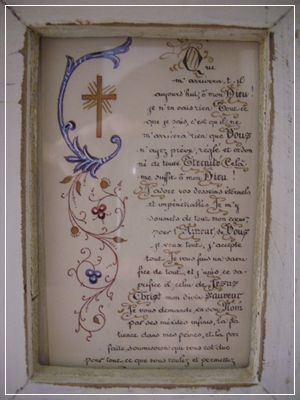 Que
m'arrivera-t-il
aujourd'hui, ô mon Dieu!
je n'en sais rien. Tout ce
que je sais, c'est qu'il ne
m'arrivera rien que Vous
n'ayez prévu, réglé et ordon
né de toute Eternité. Cela
me suffit ô mon Dieu!
J'adore vos desseins éternels
et impénétrables. Je m'y
soumets de tout mon cœur
pour l'Amour de Vous
Je veux tout, j'accepte
tout. Je vous fais un sacri
fice de tout, et j'unis ce sa
crifice à celui de Jésus
Christ mon divin Sauveur
Je vous demande en son Nom
par ses mérites infinis, la pa
tience dans mes peines, et la par
faite soumission qui vous est due
pour tout ce que vous voulez et permettez